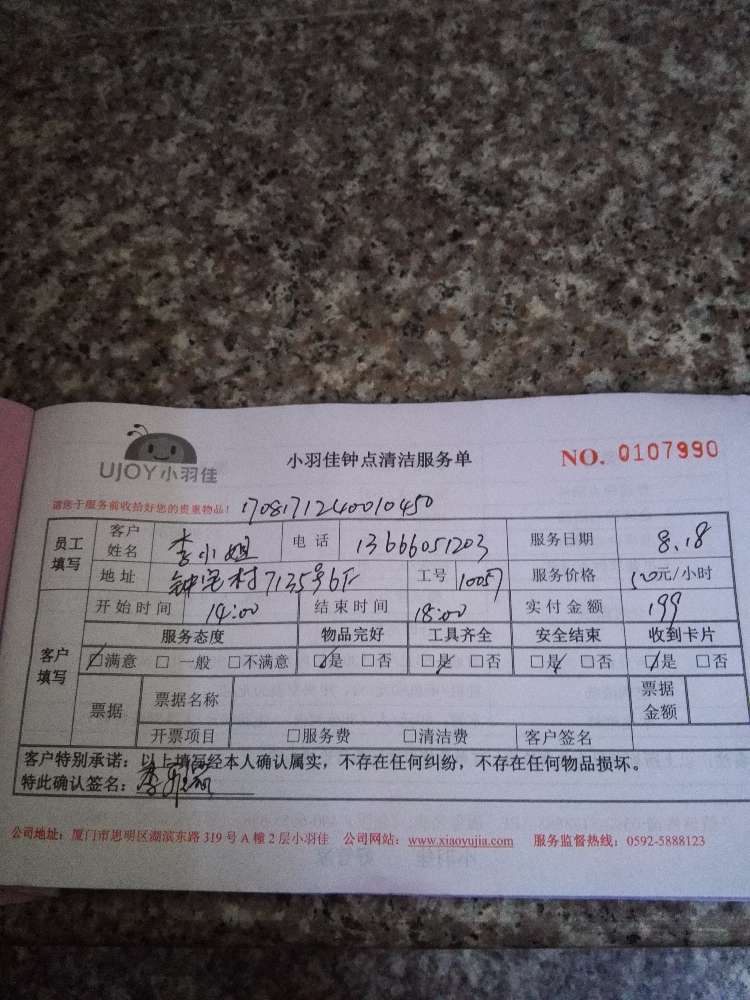 UJOY小羽佳
小羽佳钟点清洁服务单
NO. 0107990
请您于服务前收拾好您的贵重物品! 1708171240010450
员工填写 客户姓名 李小姐 电话 13666051203 服务日期 8.18
地址 钟宅村7135号6F 工号 10057 服务价格 50元/小时
客户填写 开始时间 14:00 结束时间 18:00 实付金额 199
服务态度 物品完好 工具齐全 安全结束 收到卡片
☑满意 □一般 □不满意 ☑是 □否 ☑是 □否 ☑是 □否 ☑是 □否
票据 票据名称 票据金额
开票项目 □服务费 □清洁费 客户签名
客户特别承诺:以上填写经本人确认属实,不存在任何纠纷,不存在任何物品损坏。
特此确认签名:李
公司地址:厦门市思明区湖滨东路 319 号 A 幢 2 层小羽佳 公司网站:www.xiaoyujia.com 服务监督热线:0592-5888123